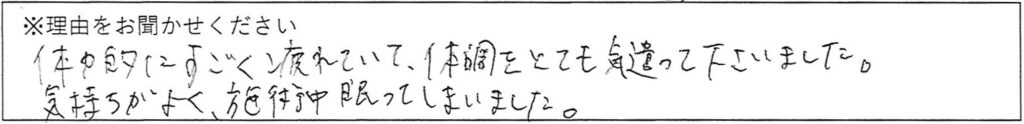 ※理由をお聞かせください
体力的にすごく疲れていて、体調をとても気遣って下さいました。
気持ちがよく、施術中眠ってしまいました。